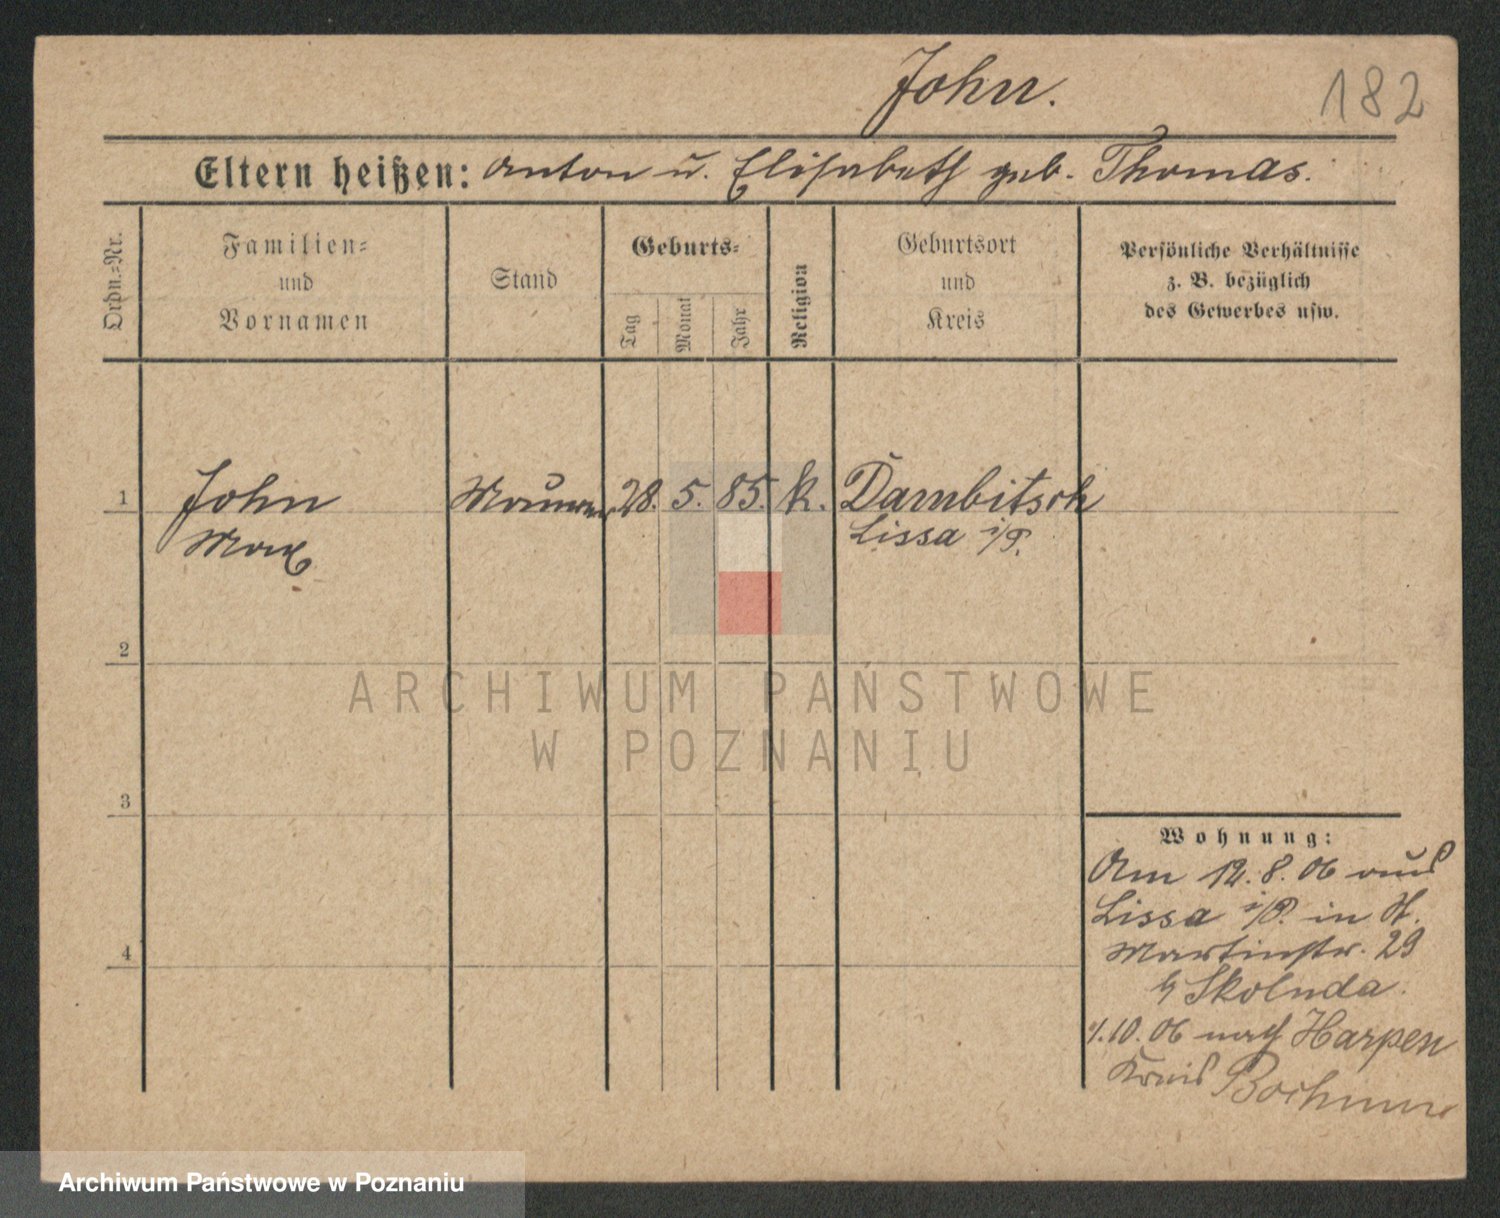 John.
182
Eltern heißen: Anton u. Elisabeth geb. Thomas.
Ordn.=Nr.
Familien=
und
Vornamen
Stand
Geburts=
Tag
Monat
Jahr
Religion
Geburtsort
und
Kreis
Persönliche Verhältnisse
z. B. bezüglich
des Gewerbes usw.
1 John Maurer 28. 5. 85. k. Dambitsch
Max Lissa i/P.
2
ARCHIWUM PAŃSTWOWE
W POZNANIU
3
Wohnung:
Am 12. 8. 06 aus
Lissa i/P. in H.
4
Martinstr. 29
b/ Skolnda.
1.10.06 nach Harpen
Kreis Bochum
Archiwum Państwowe w Poznaniu